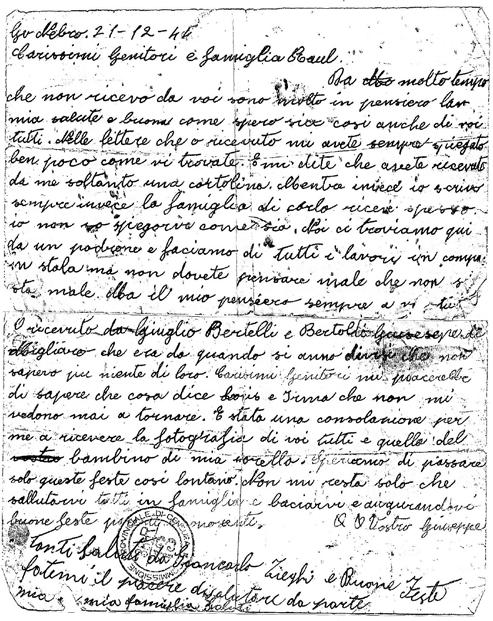 21-12-44
Carissimi Genitori e famiglia Raul.
Da molto tempo
che non ricevo da voi sono molto in pensiero la
mia salute e buona come spero sia cosi anche di voi
tutti. Nelle lettere che o ricevuto mi avete sempre spiegato
ben poco come vi trovate. E mi dite che avete ricevuto
da me soltanto una cartolina. Mentre invece io scrivo
sempre invece la famiglia di carlo riceve spesso
io non so spiegarvi come sia. Noi ci troviamo qui
da un padrone e faciamo di tutti i lavori in campa.
in stala ma non dovete pensare male che non s
sta male. Ma il mio pensiero sempre a vi
O ricevuto da Giuglio Bertelli e Bertoldo di
Migliaro che era da quando si anno divisi che non
sapevo piu niente di loro. Carissimi Genitori mi piacerebbe
di sapere che cosa dice e Irma che non mi
vedono mai a tornare. E stata una consolazione per
me a ricevere la fotografia di voi tutti e quella del
bambino di mia sorella. Speriamo di passare
solo queste feste cosi lontano. Non mi resta solo che
sallutarvi tutti in famiglia e baciarvi e augurandovi
buone feste
Vostro Giuseppe
Tanti Saluti da Giancarlo Zieghi e Buone Feste
fatemi il piacere di salutare da parte
mia mia famiglia Saluti